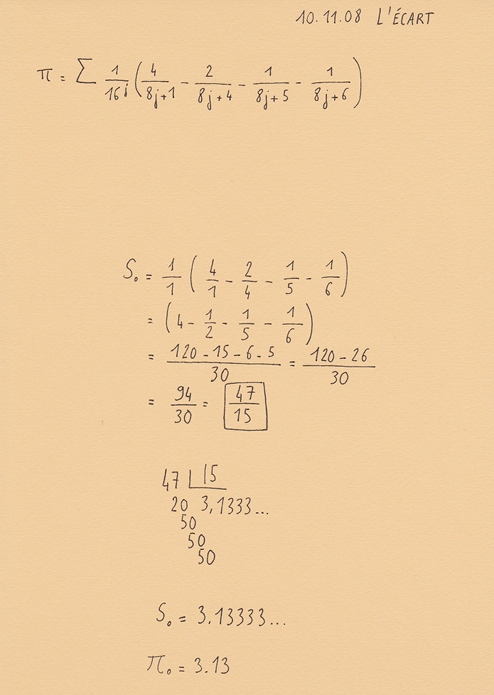 10.11.08 L'ÉCART
π = Σ 1/16^j (4/8j+1 - 2/8j+4 - 1/8j+5 - 1/8j+6)
S₀ = 1/1 (4/1 - 2/4 - 1/5 - 1/6)
= (4 - 1/2 - 1/5 - 1/6)
= 120-15-6-5/30 = 120-26/30
= 94/30 = 47/15
47 | 15
20 3,1333...
50
50
50
S₀ = 3.13333...
π₀ = 3.13